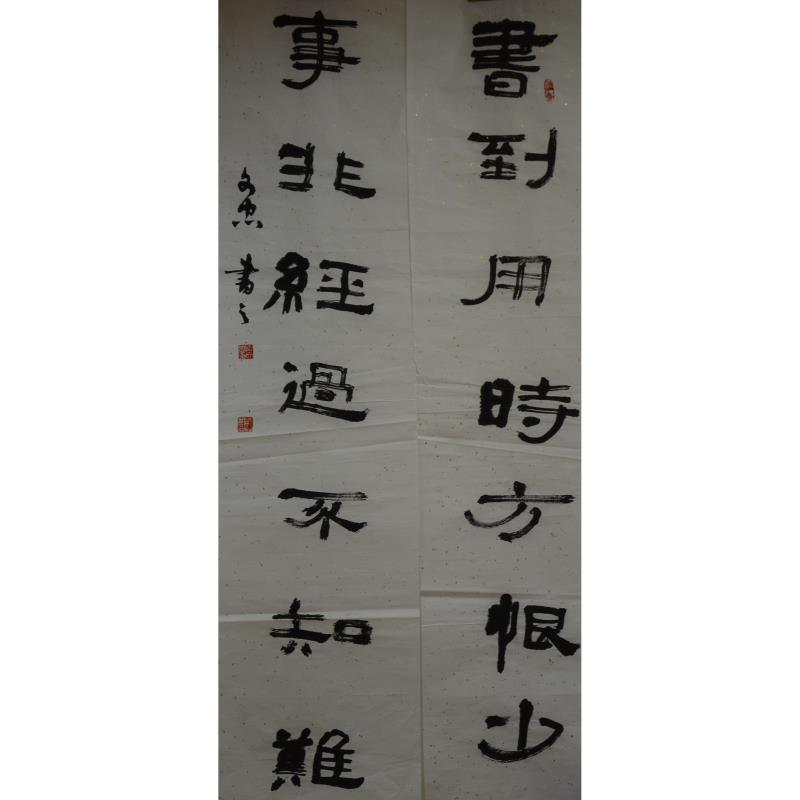 書到用時方恨少
事非經過不知難
文忠 書之